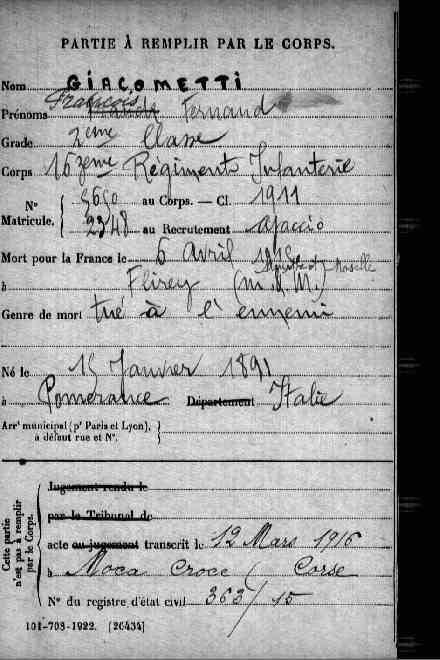 PARTIE À REMPLIR PAR LE CORPS.
Nom GIACOMETTI
Prénoms François Fernand
Grade 2ème Classe
Corps 163ème Régiments Infanterie
N° Matricule. { 5690 au Corps. — Cl. 1911
2348 au Recrutement Ajaccio
Mort pour la France le 6 Avril 1915
à Flirey (M. & M.) Meurthe et Moselle
Genre de mort tué à l'ennemi
Né le 15 Janvier 1891
à Pomerance Département Italie
Arr' municipal (p' Paris et Lyon),
à défaut rue et N°. }
Cette partie n'est pas à remplir par le Corps. {
Jugement rendu le
par le Tribunal de
acte ou jugement transcrit le 12 Mars 1916
à Moca Croce (Corse
N° du registre d'état civil 363/15
101-708-1922. [26434]